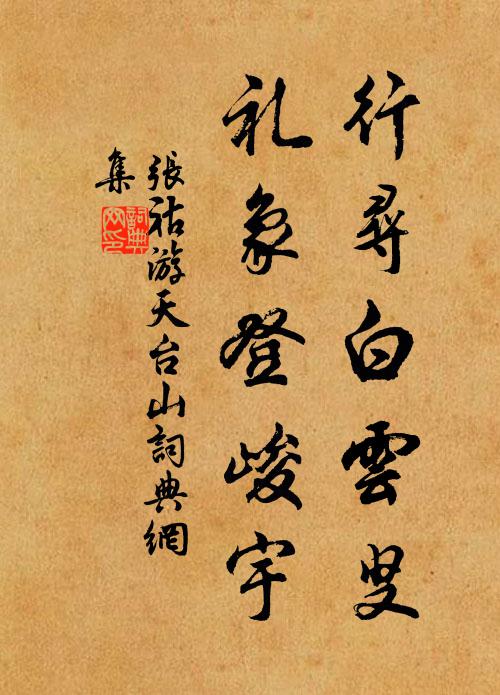 行尋白雲叟
礼象登峻宇
張祜游天台山詞典網
集
詞典網印